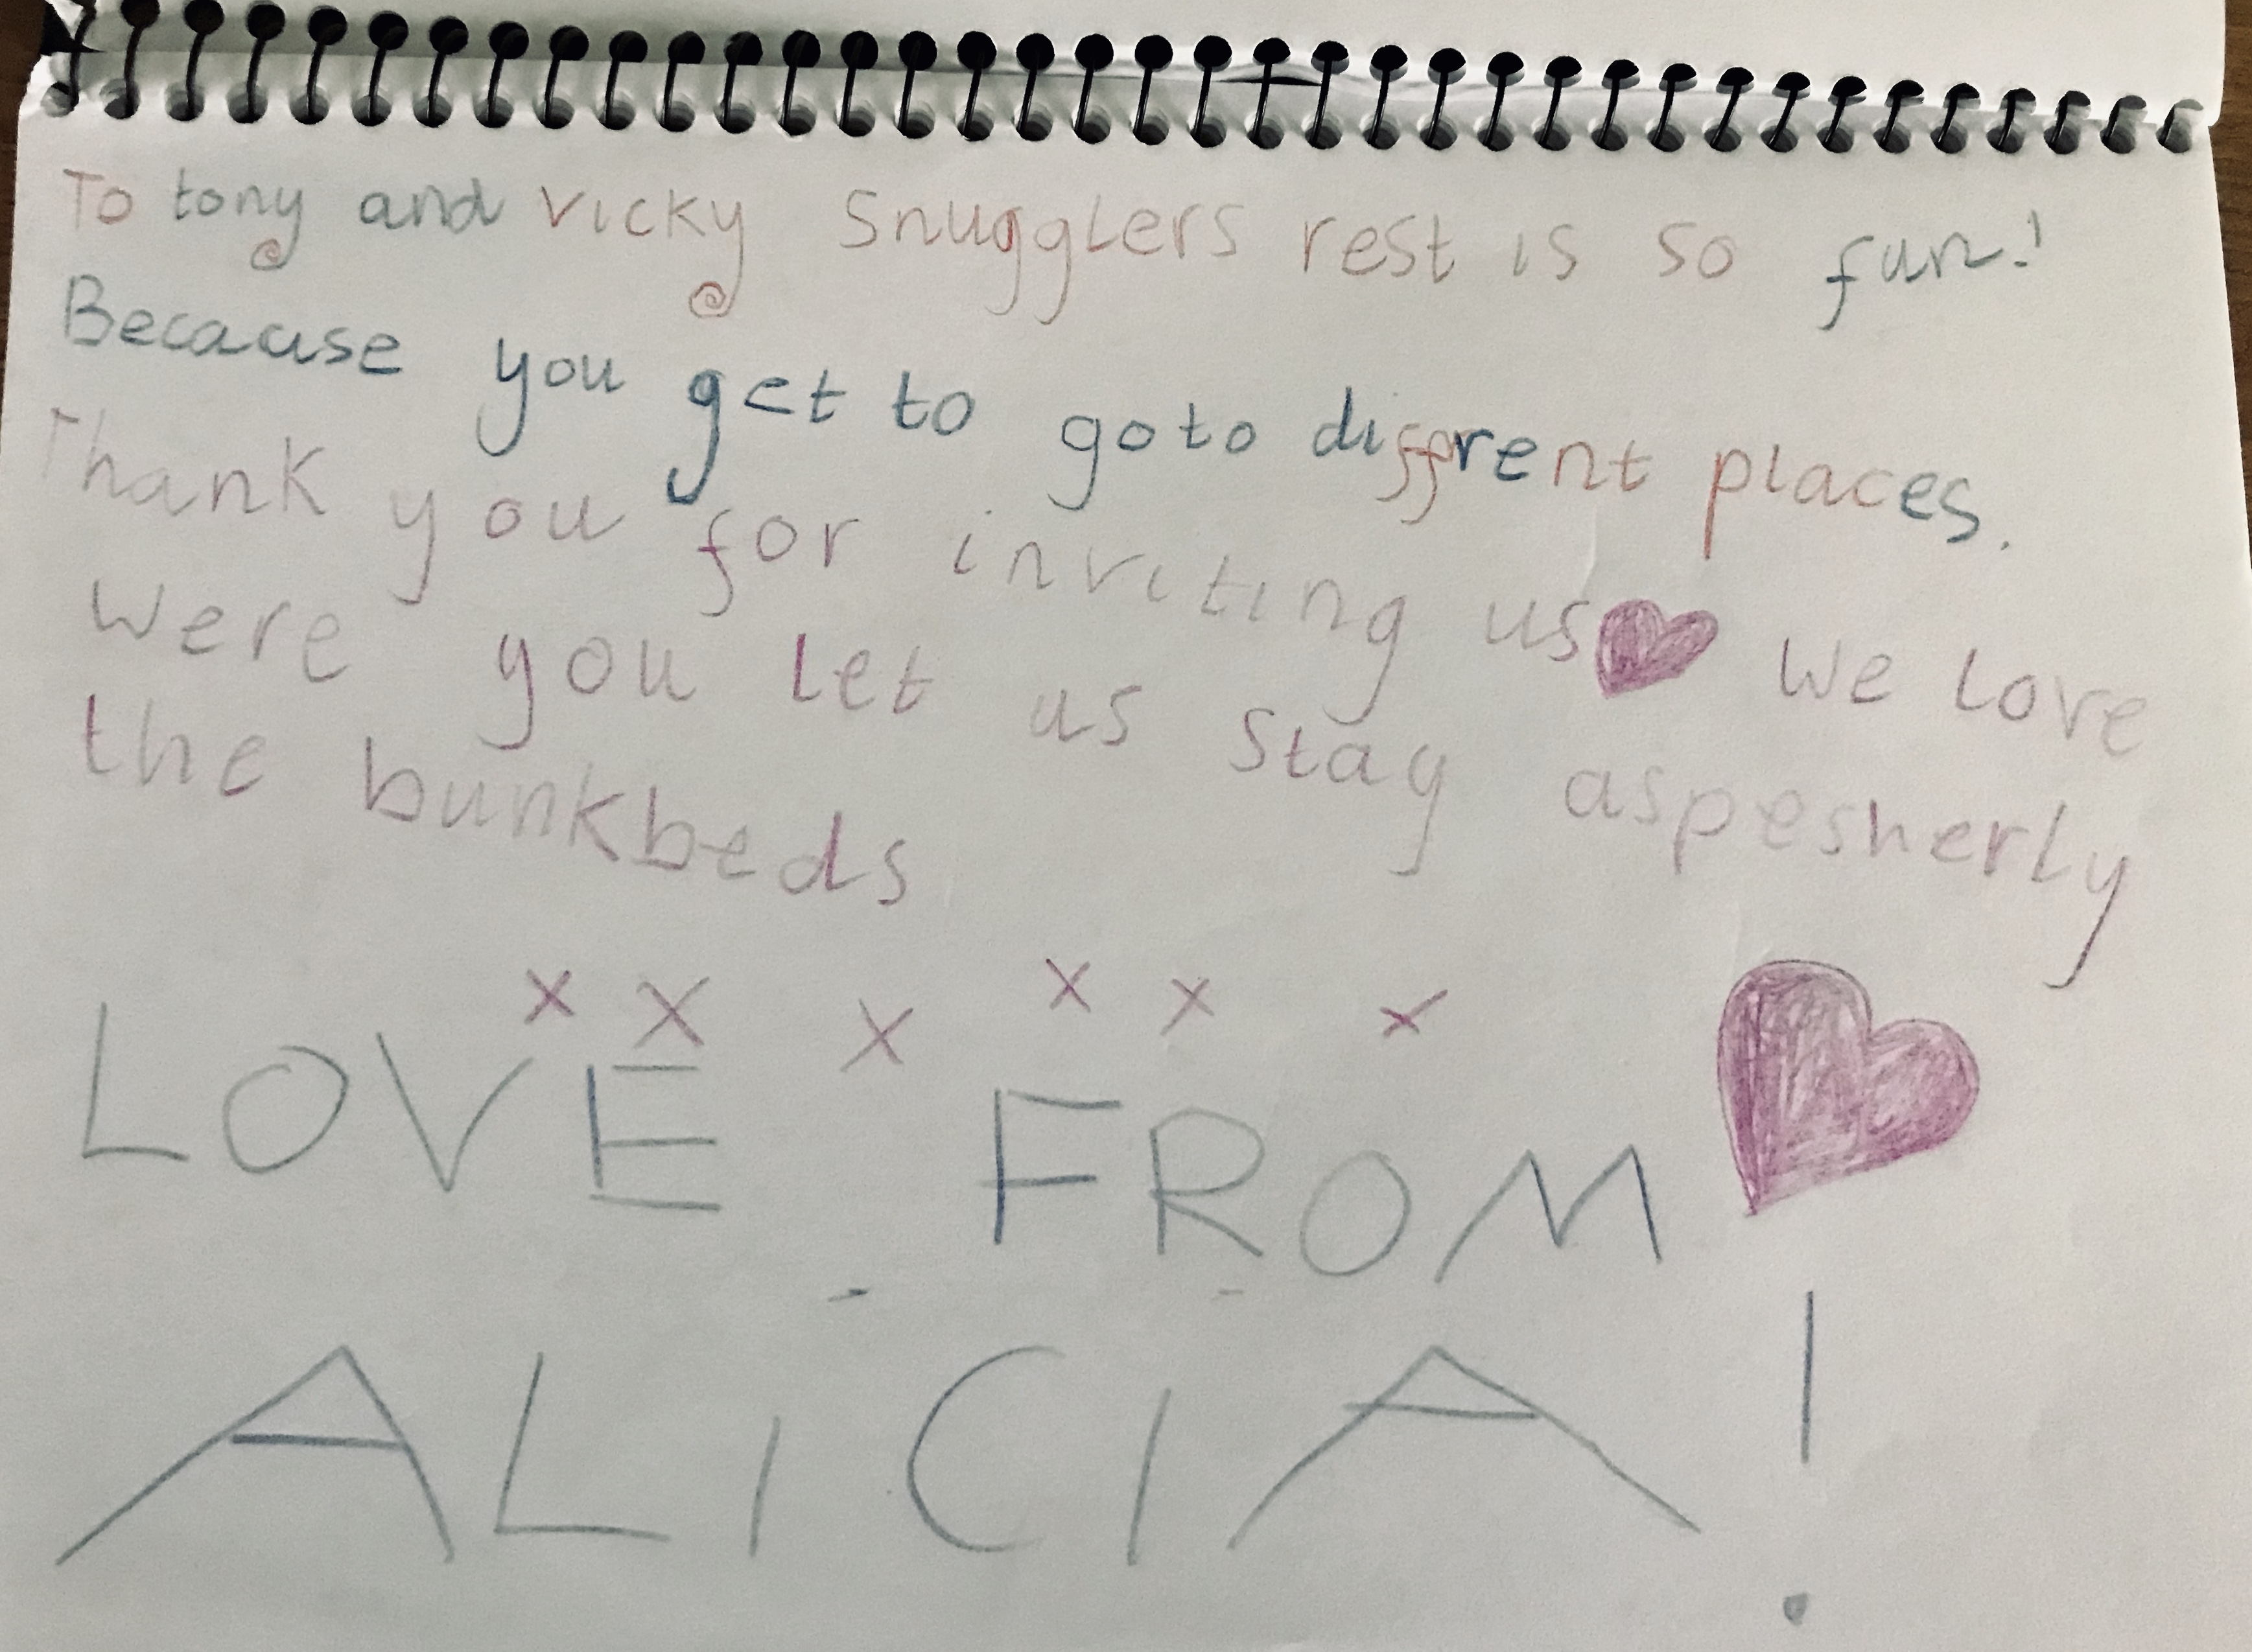 To tony and vicky Snugglers rest is so fun!
Because you get to go to diffrent places.
Thank you for inviting us♥ We love
were you let us stay aspesherly
the bunkbeds
x x x x x x
LOVE FROM
ALICIA!